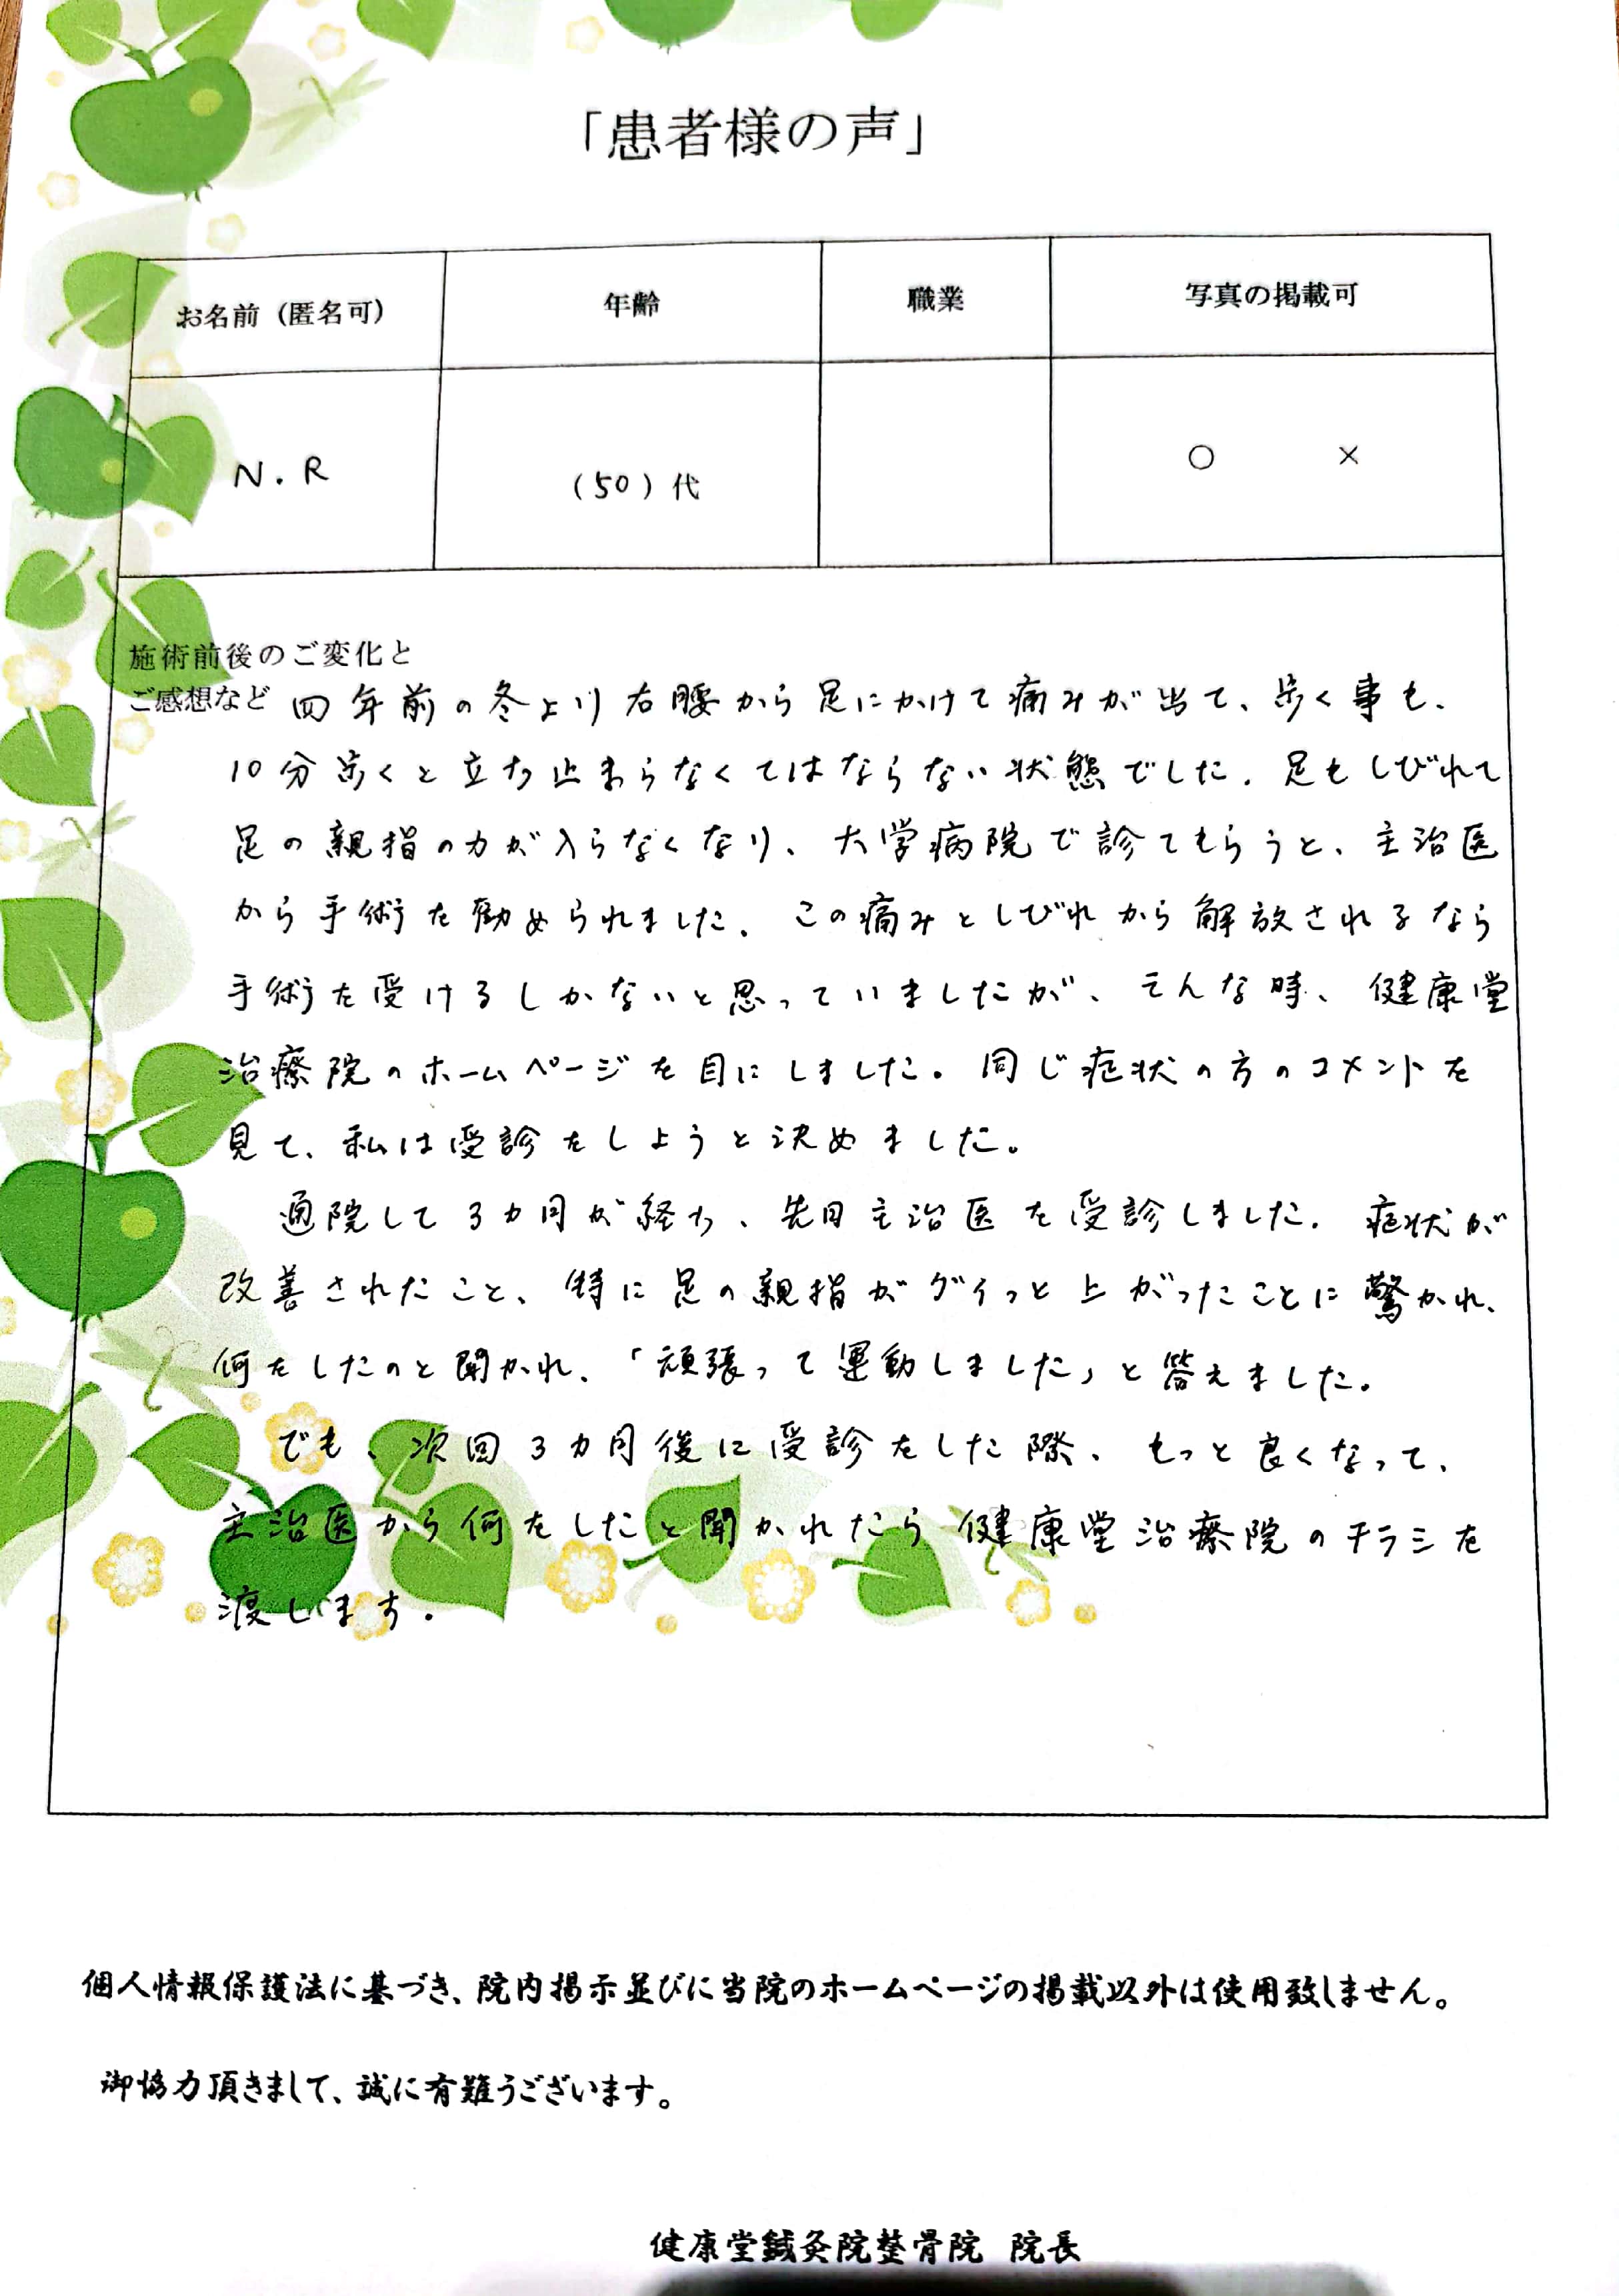 「患者様の声」
お名前（匿名可） 年齢 職業 写真の掲載可
N.R （50）代 ○ ×
施術前後のご変化と
ご感想など 四年前の冬より右腰から足にかけて痛みが出て、歩く事も、
10分歩くと立ち止まらなくてはならない状態でした。足もしびれて
足の親指の力が入らなくなり、大学病院で診てもらうと、主治医
から手術を勧められました。この痛みとしびれから解放されるなら
手術を受けるしかないと思っていましたが、そんな時、健康堂
治療院のホームページを目にしました。同じ症状の方のコメントを
見て、私は受診をしようと決めました。
通院して3カ月が経ち、先日主治医を受診しました。症状が
改善されたこと、特に足の親指がグイっと上がったことに驚かれ、
何をしたのと聞かれ、「頑張って運動しました」と答えました。
でも、次回3カ月後に受診をした際、もっと良くなって、
主治医から何をしたと聞かれたら健康堂治療院のチラシを
渡します。
個人情報保護法に基づき、院内掲示並びに当院のホームページの掲載以外は使用致しません。
御協力頂きまして、誠に有難うございます。
健康堂鍼灸院整骨院 院長